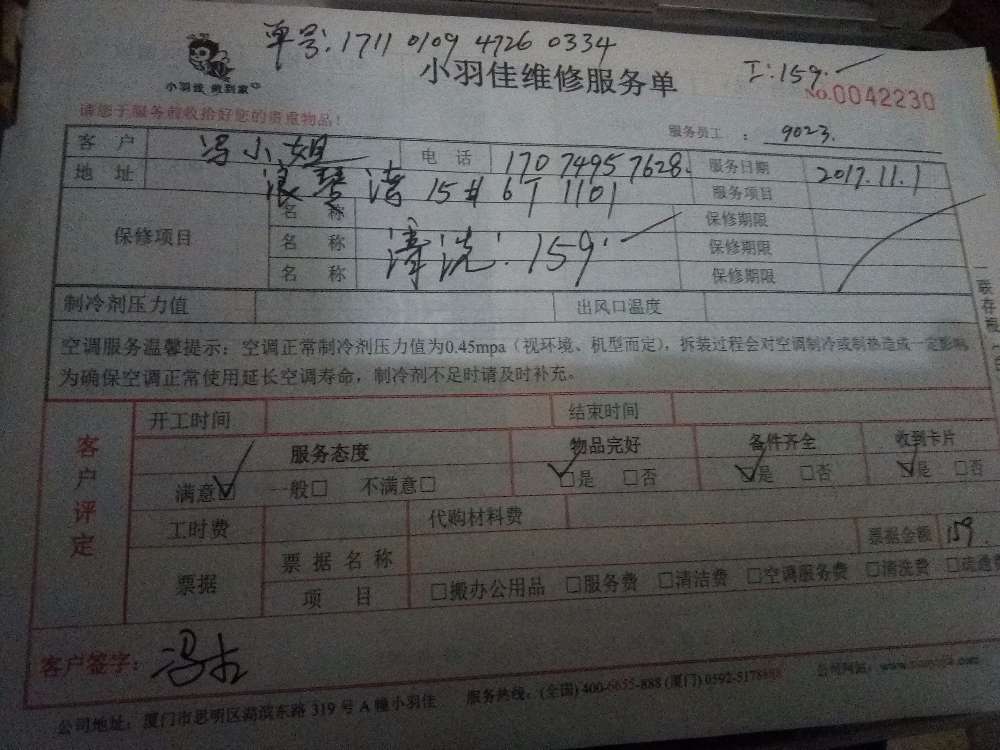 单号: 1711 0109 4726 0334
小羽佳 做到家
小羽佳维修服务单
工: 159.
No.0042230
请您于服务前收拾好您的贵重物品！
服务员工 : 9023.
客 户 冯小姐 电 话 170 7495 7628. 服务日期 2017.11.1
地 址 浪琴湾 15# 6T 1101 服务项目
保修项目
名 称 保修期限
名 称 清洗: 159. 保修期限
名 称 保修期限
制冷剂压力值 出风口温度
空调服务温馨提示: 空调正常制冷剂压力值为0.45mpa（视环境、机型而定），拆装过程会对空调制冷或制热造成一定影响，
为确保空调正常使用延长空调寿命，制冷剂不足时请及时补充。
一联存根
客户评定
开工时间 结束时间
服务态度 物品完好 备件齐全 收到卡片
满意☑ 一般□ 不满意□ ☑是 □否 ☑是 □否 ☑是 □否
工时费 代购材料费
票据 票据名称 票据金额 159.
项 目 □搬办公用品 □服务费 □清洁费 □空调服务费 □清洗费
客户签字: 冯
公司地址: 厦门市思明区湖滨东路 319 号 A 幢小羽佳 服务热线: (全国) 400-6655-888 (厦门) 0592-5178888 公司网站: